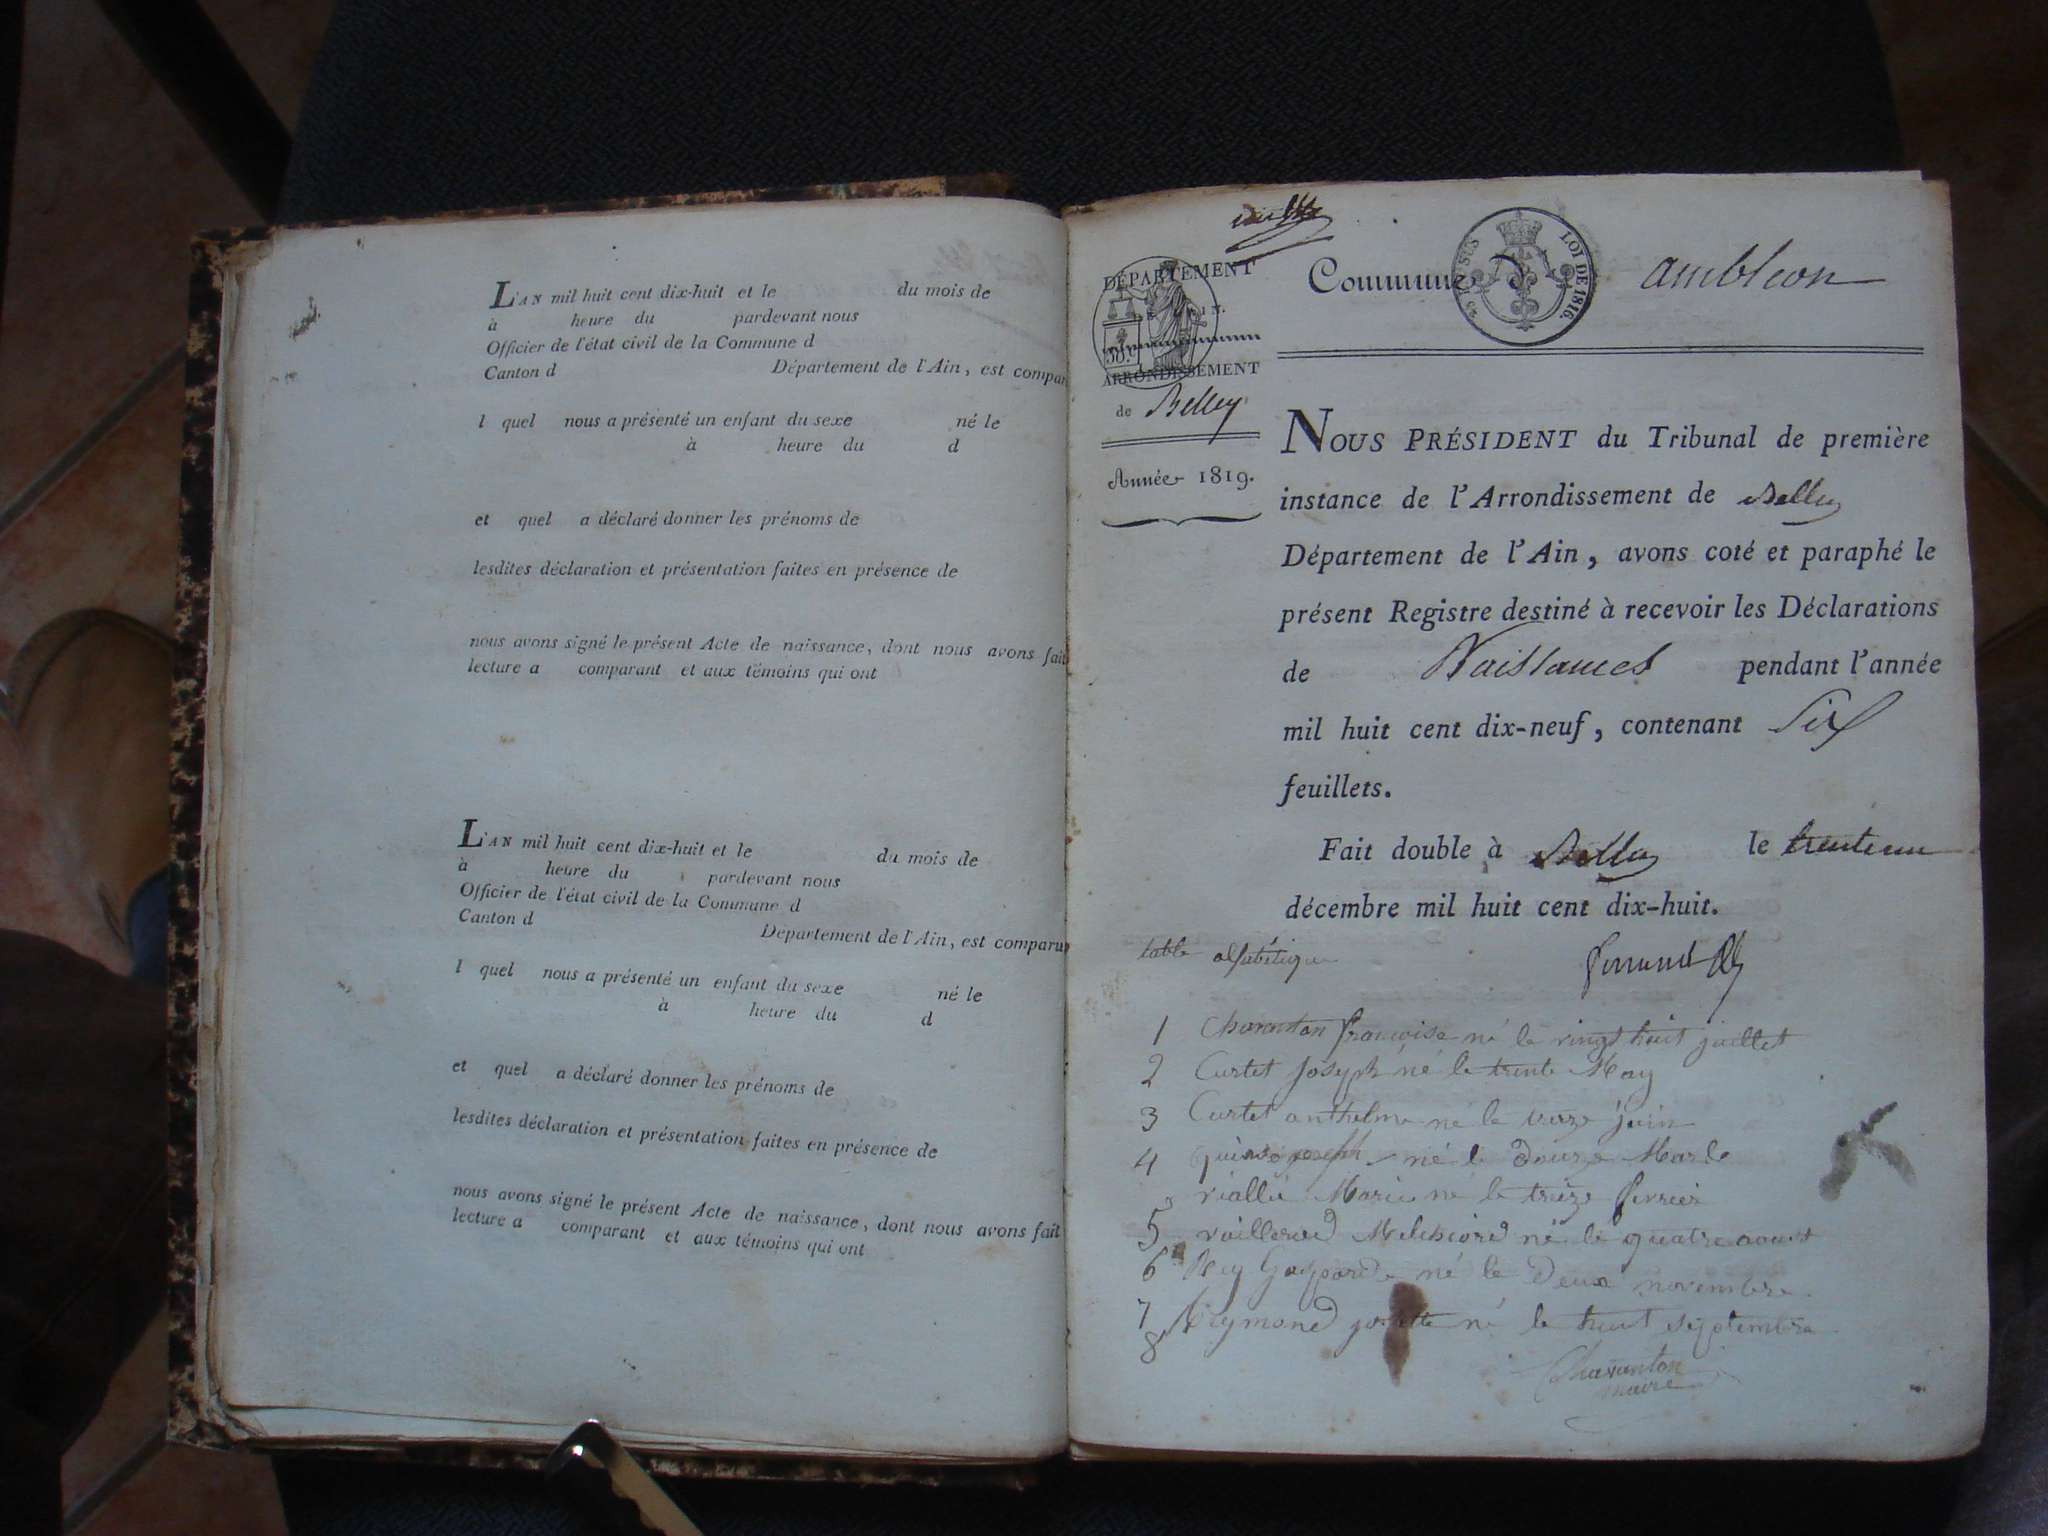 L'AN mil huit cent dix-huit et le du mois de
à heure du pardevant nous
Officier de l'état civil de la Commune d
Canton d Département de l'Ain, est compar
l quel nous a présenté un enfant du sexe né le
à heure du d
et quel a déclaré donner les prénoms de
lesdites déclaration et présentation faites en présence de
nous avons signé le présent Acte de naissance, dont nous avons fait
lecture a comparant et aux témoins qui ont
L'AN mil huit cent dix-huit et le du mois de
à heure du pardevant nous
Officier de l'état civil de la Commune d
Canton d Département de l'Ain, est comparu
l quel nous a présenté un enfant du sexe né le
à heure du d
et quel a déclaré donner les prénoms de
lesdites déclaration et présentation faites en présence de
nous avons signé le présent Acte de naissance, dont nous avons fait
lecture a comparant et aux témoins qui ont
DÉPARTEMENT
ARRONDISSEMENT
de Belley
Année 1819.
Commune d ambleon
LOI DE 1816.
NOUS PRÉSIDENT du Tribunal de première
instance de l'Arrondissement de Belley
Département de l'Ain, avons coté et paraphé le
présent Registre destiné à recevoir les Déclarations
de Naissances pendant l'année
mil huit cent dix-neuf, contenant Six
feuillets.
Fait double à Belley le trente un
décembre mil huit cent dix-huit.
table alfabétique
1 Chavanton francoise né le vingt huit juillet
2 Curtet Joseph né le trente May
3 Curtet anthelme né le juin
4 joseph né le Douze Mars
5 Marie né le treize fevrier
6 Melchiord né le quatre aoust
7 Rey Gaspard né le Deux novembre
8 Reymond josette né le huit septembre
Chavanton
maire